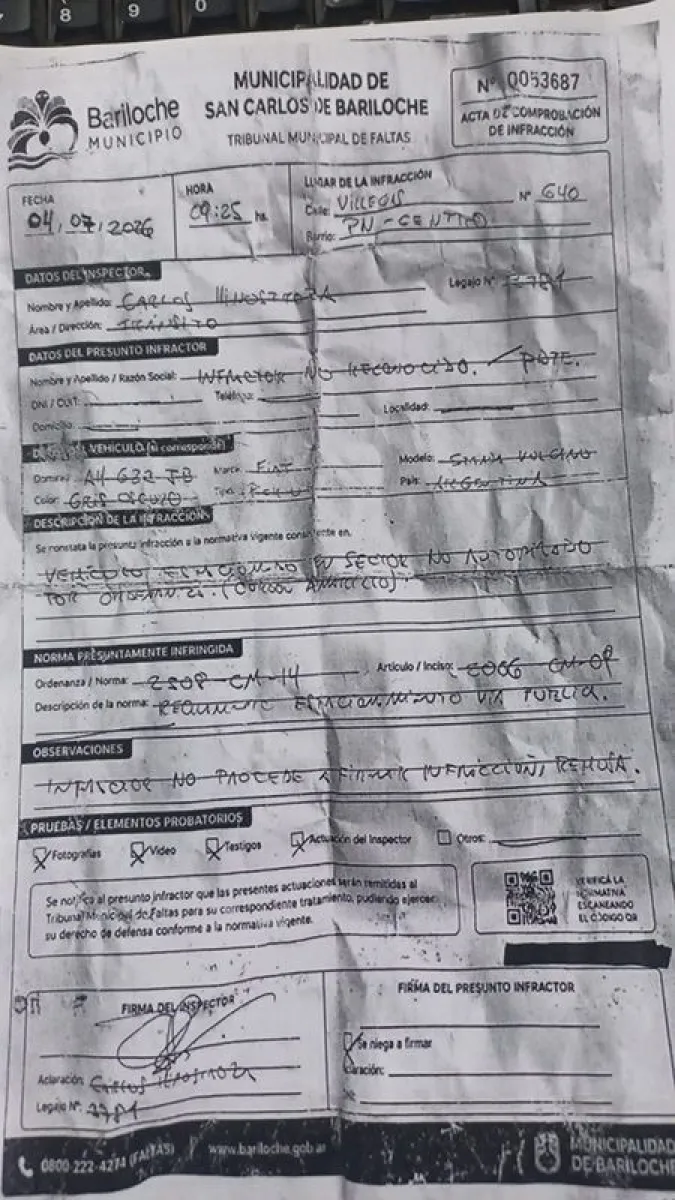 8 9 0
Bariloche
MUNICIPIO
MUNICIPALIDAD DE
SAN CARLOS DE BARILOCHE
TRIBUNAL MUNICIPAL DE FALTAS
Nº 0053687
ACTA DE COMPROBACIÓN
DE INFRACCIÓN
FECHA
04/07/2026
HORA
09:25 hs
LUGAR DE LA INFRACCIÓN
Calle: VILLEGAS Nº 640
Barrio: PN-CENTRO
DATOS DEL INSPECTOR
Nombre y Apellido: CARLOS HINOSTROZA Legajo Nº
Área / Dirección: TRÁNSITO
DATOS DEL PRESUNTO INFRACTOR
Nombre y Apellido / Razón Social: INFRACTOR NO RECONOCIDO.
DNI / CUIT: Teléfono:
Domicilio: Localidad:
VEHÍCULO (si corresponde)
Dominio: Marca: FIAT Modelo:
Color: GRIS OSCURO Tipo: País: ARGENTINA
DESCRIPCIÓN DE LA INFRACCIÓN
Se constata la presunta infracción a la normativa vigente consistente en.
VEHÍCULO ESTACIONADO EN SECTOR NO AUTORIZADO
POR ORDENANZA. (CORDON AMARILLO).
NORMA PRESUNTAMENTE INFRINGIDA
Ordenanza / Norma: 2508-CM-14 Artículo / Inciso:
Descripción de la norma: ESTACIONAMIENTO VIA PUBLICA.
OBSERVACIONES
INFRACTOR NO PROCEDE A FIRMAR INFRACCION,
PRUEBAS / ELEMENTOS PROBATORIOS
Fotografías Video Testigos Actuación del Inspector Otros:
Se notifica al presunto infractor que las presentes actuaciones serán remitidas al
Tribunal Municipal de Faltas para su correspondiente tratamiento, pudiendo ejercer
su derecho de defensa conforme a la normativa vigente.
VERIFICÁ LA
NORMATIVA
ESCANEANDO
EL CÓDIGO QR
FIRMA DEL INSPECTOR
Aclaración: CARLOS HINOSTROZA
Legajo Nº:
FIRMA DEL PRESUNTO INFRACTOR
Se niega a firmar
Aclaración:
0800-222-4274 (FALTAS)
www.bariloche.gob.ar
MUNICIPALIDAD
DE BARILOCHE